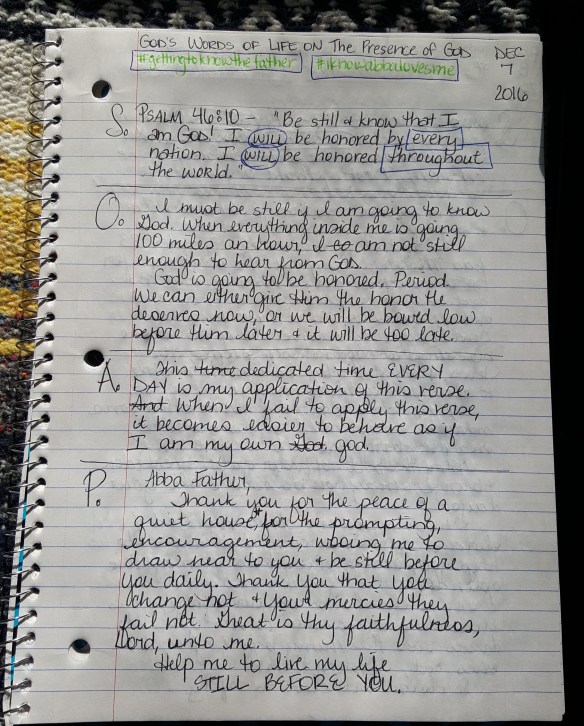 GOD'S WORDS OF LIFE ON The Presence of GOD
DEC
7
2016
#gettingtoknowthefather #iknowabbalovesme
S. PSALM 46:10 - "Be still & know that I
am God! I will be honored by every
nation. I will be honored throughout
the world."
O. I must be still if I am going to know
God. When everything inside me is going
100 miles an hour, I to am not still
enough to hear from GOD.
God is going to be honored. Period.
We can either give Him the honor He
deserves now, or we will be bowed low
before Him later & it will be too late.
A. This time dedicated time EVERY
DAY is my application of this verse.
And When I fail to apply this verse,
it becomes easier to behave as if
I am my own God. god.
P. Abba Father,
Thank you for the peace of a
quiet house, for the prompting,
encouragement, wooing me to
draw near to you & be still before
you daily. Thank you that you
change not & your mercies they
fail not. Great is thy faithfulness,
Lord, unto me.
Help me to live my life
STILL BEFORE YOU.